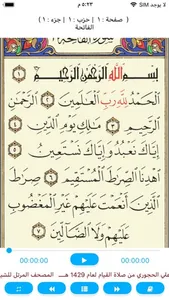 لا يوجد SIM ٥:٢٣ م
( صفحة : ١ | حزب : ١ | جزء : ١ )
الفاتحة
بِسْمِ اللَّهِ الرَّحْمَٰنِ الرَّحِيمِ ١
الْحَمْدُ لِلَّهِ رَبِّ الْعَالَمِينَ ٢ الرَّحْمَٰنِ
الرَّحِيمِ ٣ مَالِكِ يَوْمِ الدِّينِ ٤
إِيَّاكَ نَعْبُدُ وَإِيَّاكَ نَسْتَعِينُ ٥
اهْدِنَا الصِّرَاطَ الْمُسْتَقِيمَ ٦ صِرَاطَ
الَّذِينَ أَنْعَمْتَ عَلَيْهِمْ غَيْرِ الْمَغْضُوبِ
عَلَيْهِمْ وَلَا الضَّالِّينَ ٧
00:00:00 00:00:00
علي الحجوري من صلاة القيام لعام 1429 هـ المصحف المرتل للشي